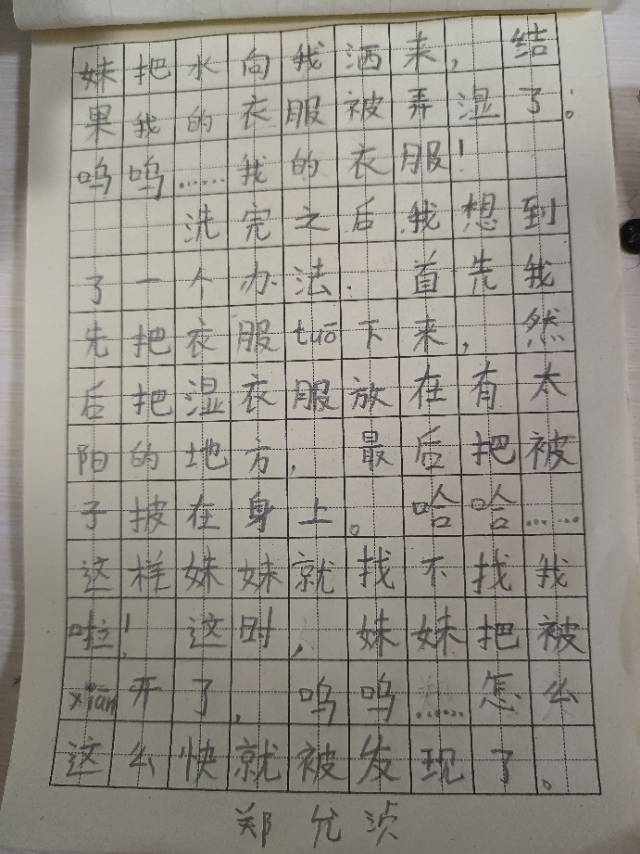 妹把水向我洒来，结
果我的衣服被弄湿了。
呜呜……我的衣服！
洗完之后我想到
了一个办法．首先我
先把衣服tuō下来，然
后把湿衣服放在有太
阳的地方，最后把被
子披在身上。哈哈……
这样妹妹就找不找我
啦！这时，妹妹把被
xiān开了，呜呜……怎么
这么快就被发现了。
郑允浈